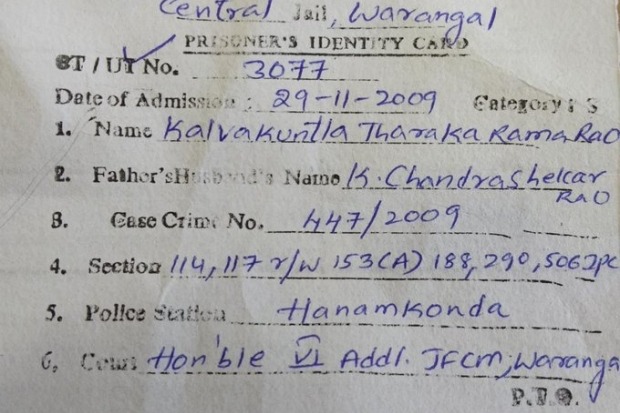 Central Jail, Warangal
PRISONER'S IDENTITY CARD
CT / UT No. 3077
Date of Admission : 29-11-2009 Category : S
1. Name Kalvakuntla Tharaka Rama Rao
2. Father's Husband's Name K. Chandrashekar
Rao
3. Case Crime No. 447/2009
4. Section 114, 117 r/w 153(A) 188, 290, 506 IPC
5. Police Station Hanamkonda
6. Court Hon'ble VI Addl. JFCM, Waranga
P.T.O.